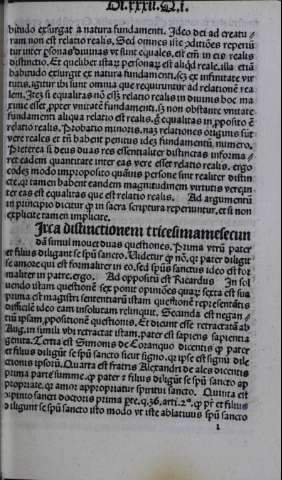 DI.XXXII. Q.I.
bitudo exſurgat a natura fundamenti. Ideo dei ad creatu
ram non eſt relatio realis. Sed omnes iſte ꝯditiões reperiũ
tur inter ꝑſonas diuinas vt ſunt equales, eſt em̃ in eis realis
diſtinctio. Et quelibet iſtaꝝ perſonaꝝ eſt aliqd̃ reale, illa etiã
habitudo exſurgit ex natura fundamenti, ſꝫ ex infinitate vir
tutis, igitur ibi ſunt omnia que requiruntur ad relationẽ rea
lem. Itẽ ſi equalitas nõ eſſꝫ relatio realis in diuinis hoc ma
xime eſſet ꝓpter vnitatẽ fundamenti, ſꝫ non obſtante vnitate
fundamenti aliqua relatio eſt realis. g̃ equalitas in ꝓpoſito ẽ
relatio realis. Probatio minoris. naꝫ relationes originis ſũt
vere reales et tñ habent penitus idẽ fundamentũ, numero.
Preterea ſi deus duas res eſſentialiter diſtinctas informa
ret eadem quantitate inter eas vere eſſet relatio realis. ergo
codeꝫ modo impropoſito quãuis perſone ſint realiter diſtin
cte, qꝛ tamen habent eandem magnitudinem virtutis vere in
ter eas eſt equalitas que eſt relatio realis. Ad argumentũ
in principio dicitur ꝙ in ſacra ſcriptura reperiuntur, et ſi non
explicite tamen implicite.
Iuxta diſtinctionem triceſimamſecun
dã ſimul mouet duas queſtiones. Prima vtrũ pater
et filius diligant ſe ſpũ ſancto. Videtur ꝙ nõ, qꝛ pater diligit
ſe amore qui eſt formaliter in eo. ſed ſpũs ſanctus ideo eſt for
maliter in patre. ergo. Ad oppoſitũ eſt Ricardus In ſol
uendo iſtam queſtionẽ ſex ponit opiniões quaꝝ ſexta eſt ſua
prima eſt magiſtri ſententiarũ iſtam queſtionẽ repreſentãtis
difficilẽ ideo eam inſolutam relinquit. Secunda eſt negan
tiũ ipſam ꝓpoſitionẽ queſtionis. Et dicunt eſſe retractatã ab
Aug. in ſimili vbi retractat iſtam, pater eſt ſapiens ſapientia
genita. Tertia eſt Simonis de Tornaco dicentis ꝙ pater
et filius diligũt ſe ſpũ ſancto ſicut ſigno, qꝛ ipſe eſt ſignũ dile
ctionis ipſorũ. Quarta eſt fratris Alexandri de ales dicentis
prima parte ſumme. ꝙ pater ⁊ filius diligũt ſe ſpũ ſancto ap
propriate, qꝛ amor appropriatur ſpiritui ſancto. Quinta eſt
opinio ſancti doctoris prima ꝑte. q. 36. arti. 2º. ꝙ pr̃ et filius
diligunt ſe ſpũ ſancto iſto modo vt iſte ablatiuus ſpũ ſancto